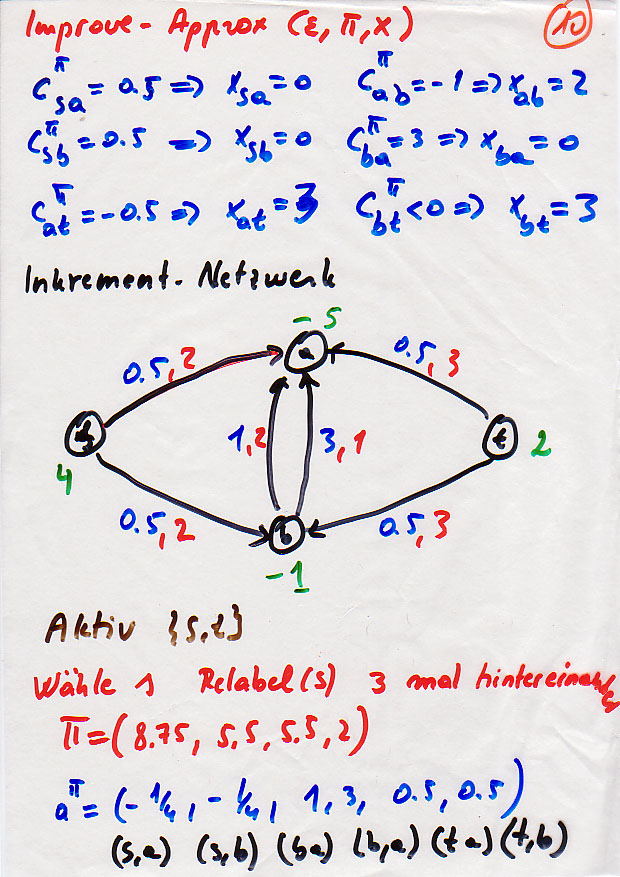 Improve-Approx (ε, π, x) 10
C^π_sa = 0.5 => x_sa = 0 C^π_ab = -1 => x_ab = 2
C^π_sb = 0.5 => x_sb = 0 C^π_ba = 3 => x_ba = 0
C^π_at = -0.5 => x_at = 3 C^π_bt < 0 => x_bt = 3
Inkrement-Netzwerk
-5
a
0.5, 2
0.5, 3
s
1, 2
3, 1
t
2
4
0.5, 2
0.5, 3
b
-1
Aktiv {s,t}
Wähle s Relabel(s) 3 mal hintereinander
π = (8.75, 5.5, 5.5, 2)
a^π = (-1/4, -1/4, 1, 3, 0.5, 0.5)
(s,a) (s,b) (ba) (b,a) (t a) (t,b)